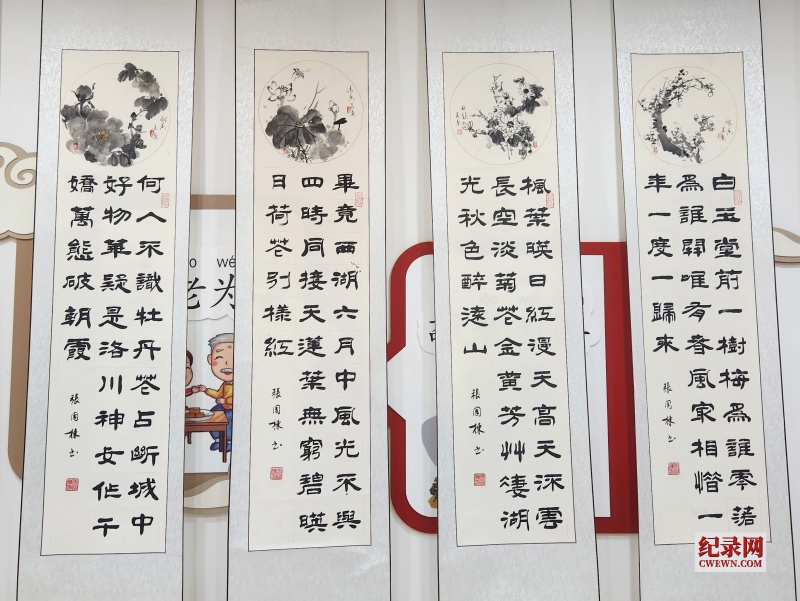 何人不識牡丹花占斷城中
好物華疑是洛川神女作千
嬌萬態破朝霞
張国棟书
畢竟西湖六月中風光不與
四時同接天蓮葉無窮碧暎
日荷花别樣紅
張国棟书
楓葉暎日紅漫天高天深雲
長空淡菊花金黄芳艸凄湖
光秋色醉遠山
張国棟书
白玉堂前一樹梅爲誰零落
爲誰開唯有春風冣相惜一
年一度一歸来
張国棟书
o wé
老为
纪录网
CWEWN.COM